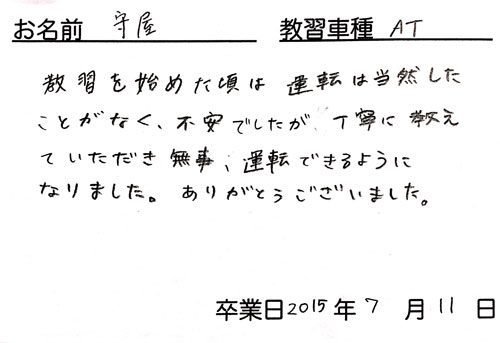 お名前 守屋 教習車種 AT
教習を始めた頃は 運転は当然した
ことがなく、不安でしたが、丁寧に教え
ていただき 無事、運転できるように
なりました。ありがとうございました。
卒業日2015年7月11日